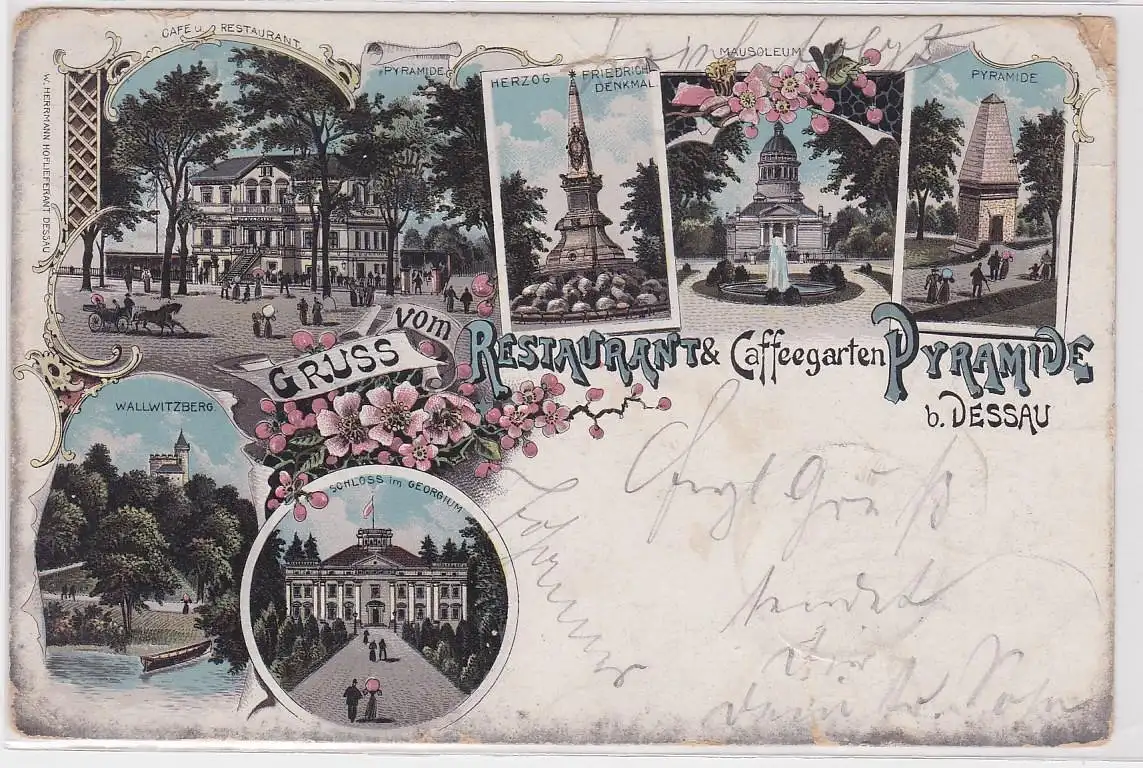 CAFE u. RESTAURANT
PYRAMIDE
HERZOG FRIEDRICH
DENKMAL
MAUSOLEUM
PYRAMIDE
W. HERRMANN HOFLIEFERANT DESSAU
GRUSS vom RESTAURANT & Caffeegarten PYRAMIDE
b. DESSAU
WALLWITZBERG.
SCHLOSS im GEORGIUM
Gruß
sendet
Dir
dein Sohn